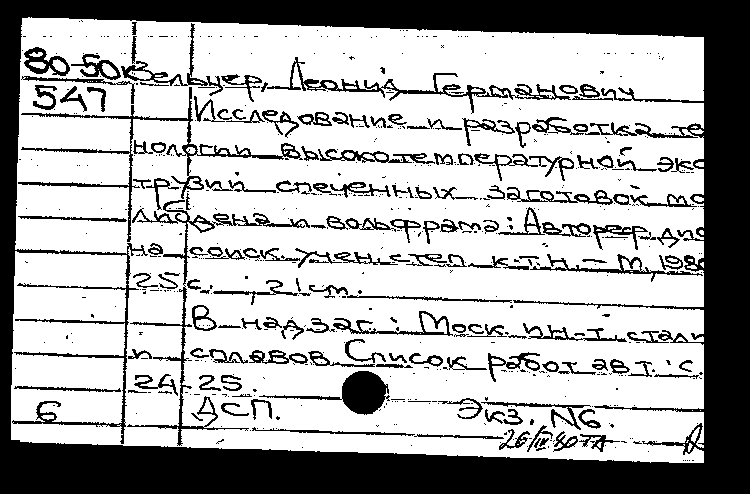 80-50к Вельцер, Леонид Германович
547
Исследование и разработка те
нологии высокотемпературной экс
трузии спеченных заготовок мо
либдена и вольфрама: Автореф. дис
на соиск. учен. степ. к.т.н. – М., 1980
25 с. ; 21 см.
В надзаг.: Моск. ин-т. стали
и сплавов. Список работ авт.: с.
24-25.
6 ДСП. Экз. №6.
26/III 80